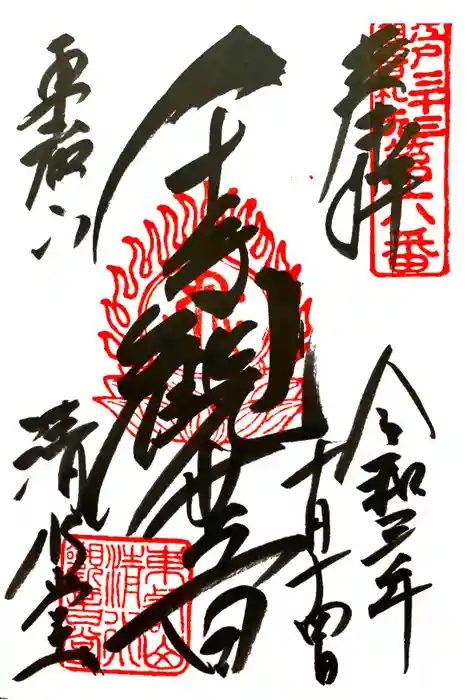 江戸三十三
観音札所第六番
奉拝
令和三年
十月十四日
千手観世音
東叡山
清水堂
東叡山
清水
観音堂